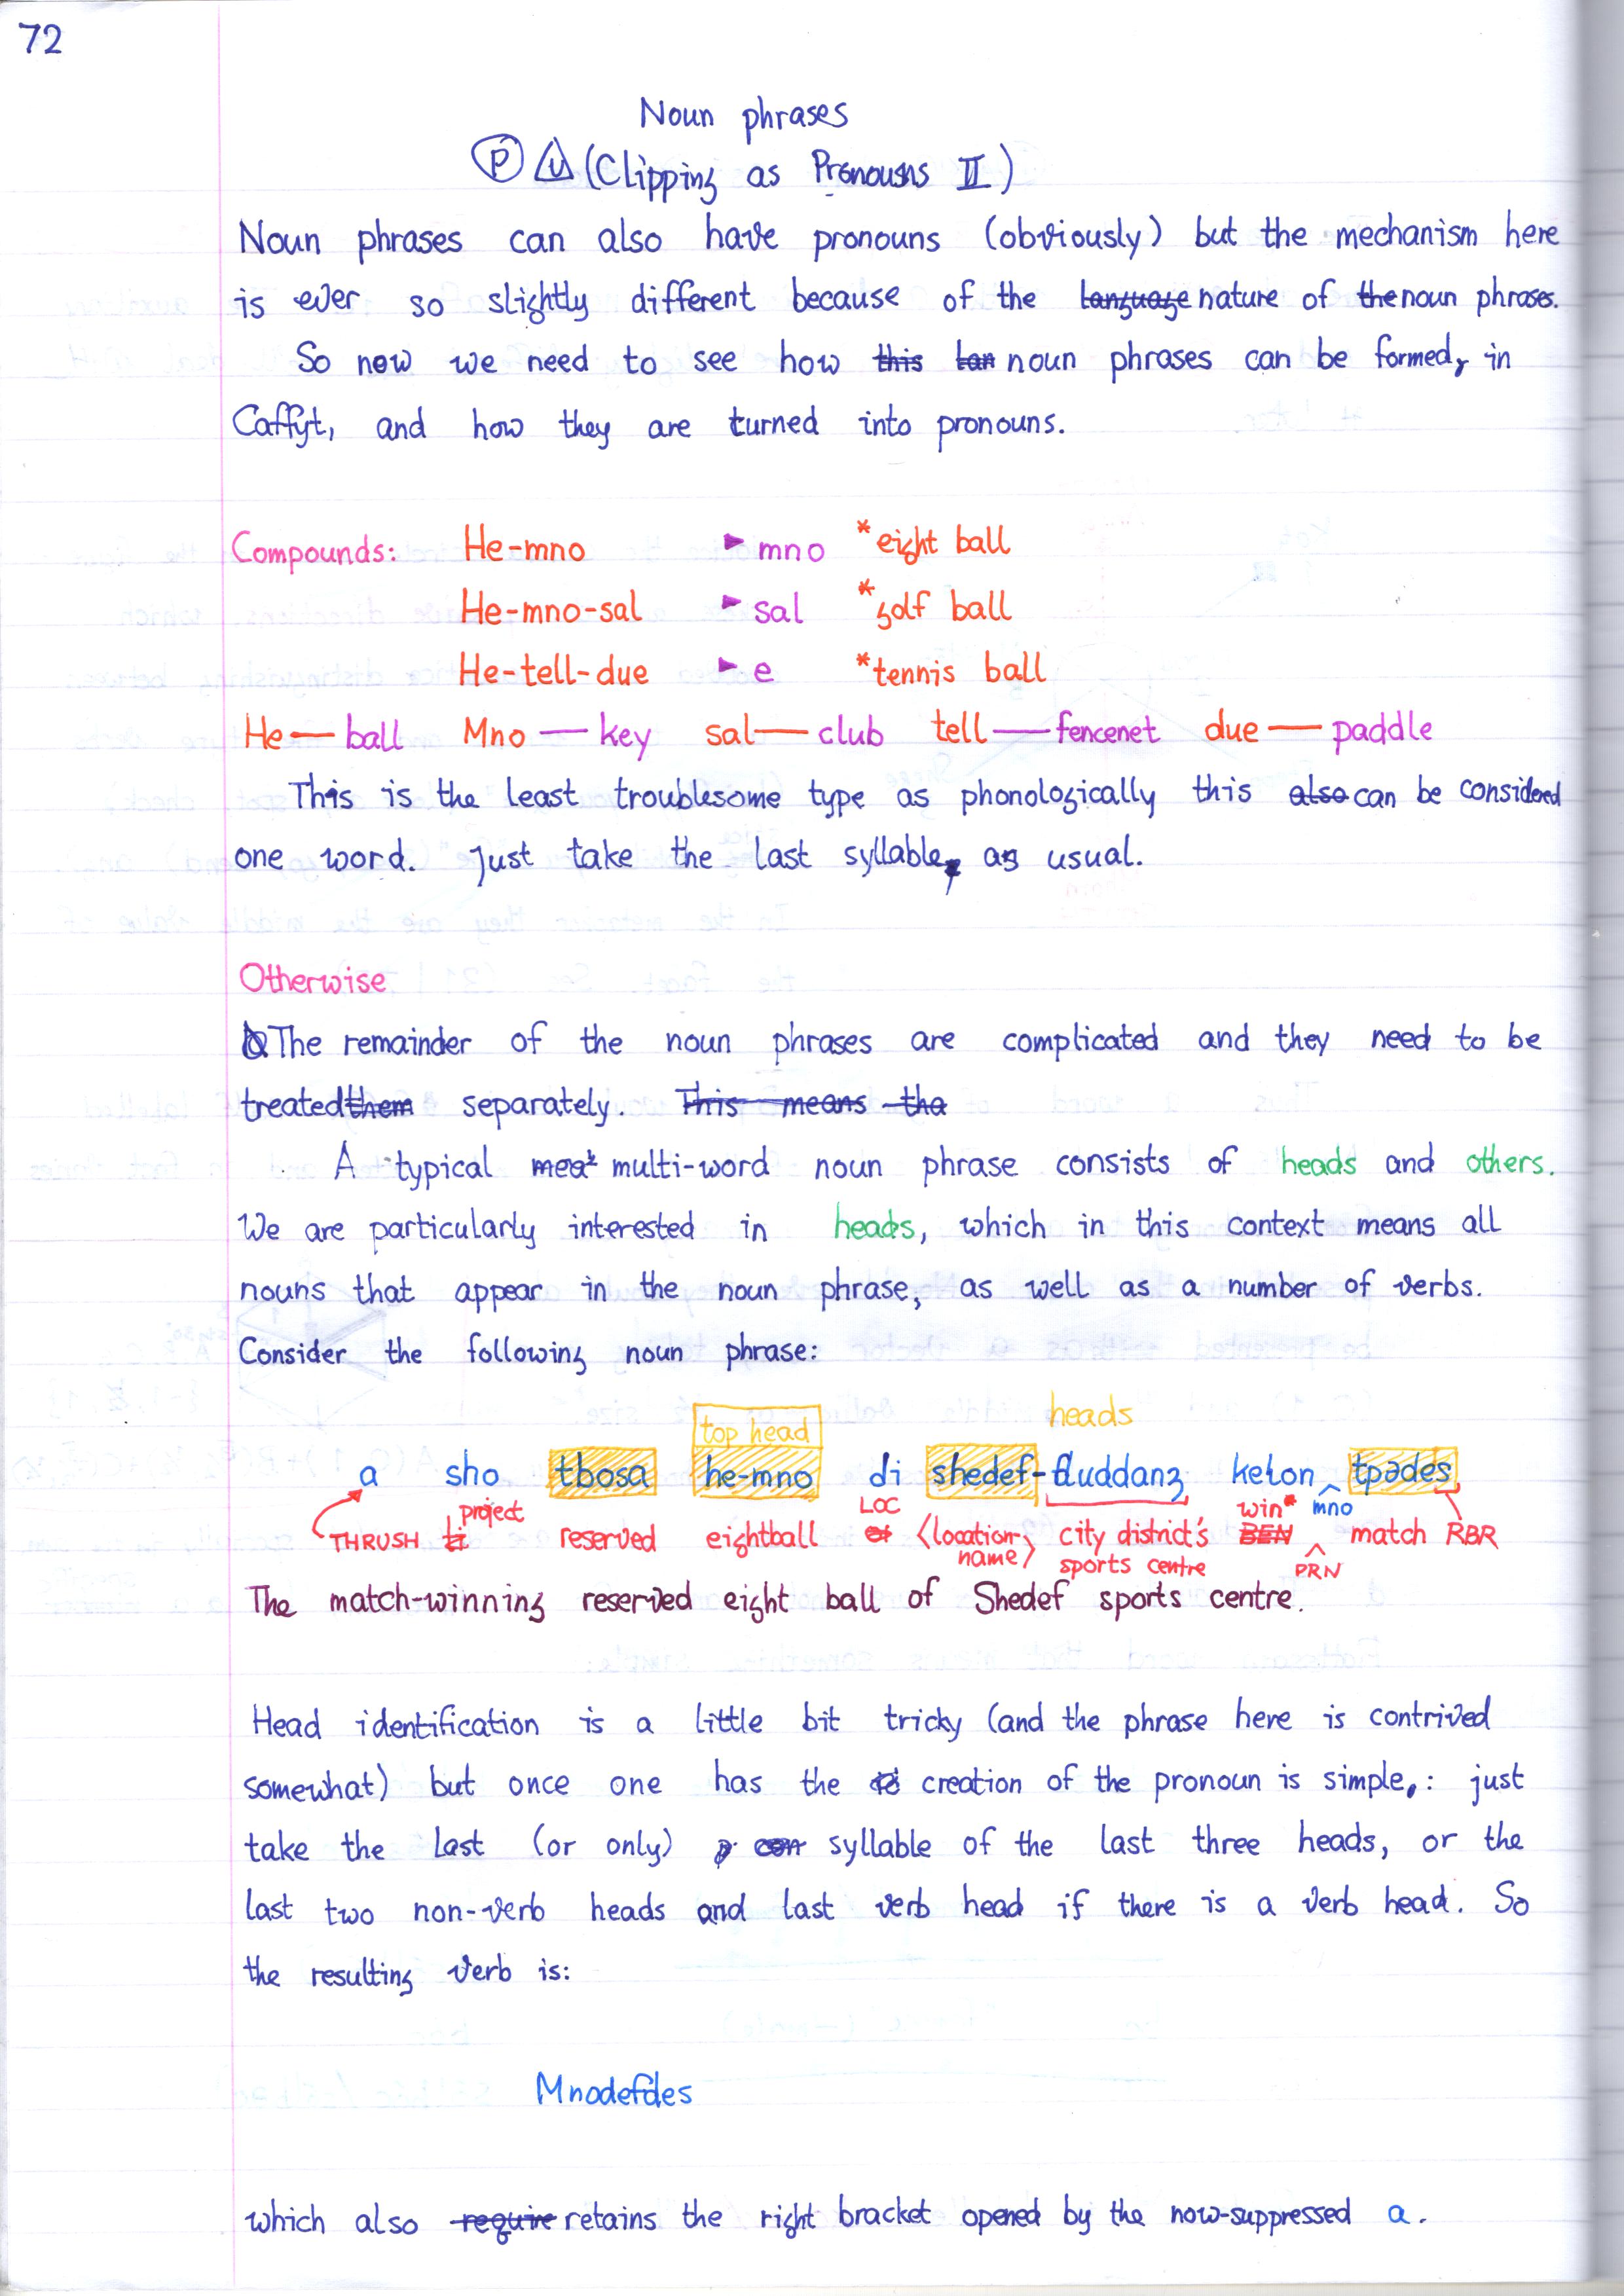 72
Noun phrases
P U (Clipping as Pronouns II)
Noun phrases can also have pronouns (obviously) but the mechanism here
is ever so slightly different because of the language nature of the noun phrases.
So now we need to see how this lan noun phrases can be formed, in
Caffyt, and how they are turned into pronouns.
Compounds: He-mno ► mno *eight ball
He-mno-sal ► sal *golf ball
He-tell-due ► e *tennis ball
He — ball Mno — key sal — club tell — fencenet due — paddle
This is the least troublesome type as phonologically this also can be considered
one word. Just take the last syllable, as usual.
Otherwise
The remainder of the noun phrases are complicated and they need to be
treated them separately. This means tha
A typical meat multi-word noun phrase consists of heads and others.
We are particularly interested in heads, which in this context means all
nouns that appear in the noun phrase, as well as a number of verbs.
Consider the following noun phrase:
top head heads
a sho tbosa he-mno di shedef-fluddanz kelon ^ tpədes
mno
THRUSH project reserved eightball LOC of <location name> city district's sports centre win* BEN ^ PRN match RBR
The match-winning reserved eight ball of Shedef sports centre.
Head identification is a little bit tricky (and the phrase here is contrived
somewhat) but once one has the creation of the pronoun is simple,: just
take the last (or only) syllable of the last three heads, or the
last two non-verb heads and last verb head if there is a verb head. So
the resulting verb is:
Mnodefdes
which also require retains the right bracket opened by the now-suppressed a.